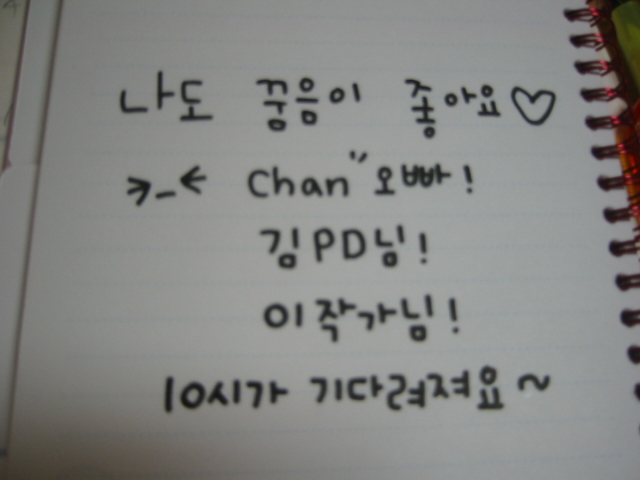 나도 꿈음이 좋아요♡
>_< Chan" 오빠!
김PD님!
이작가님!
10시가 기다려져요~